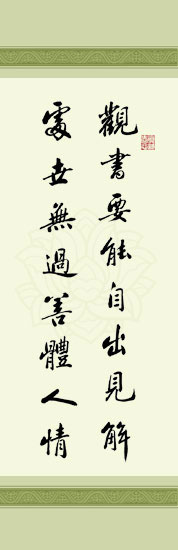 觀書要能自出見解
處世無過善體人情